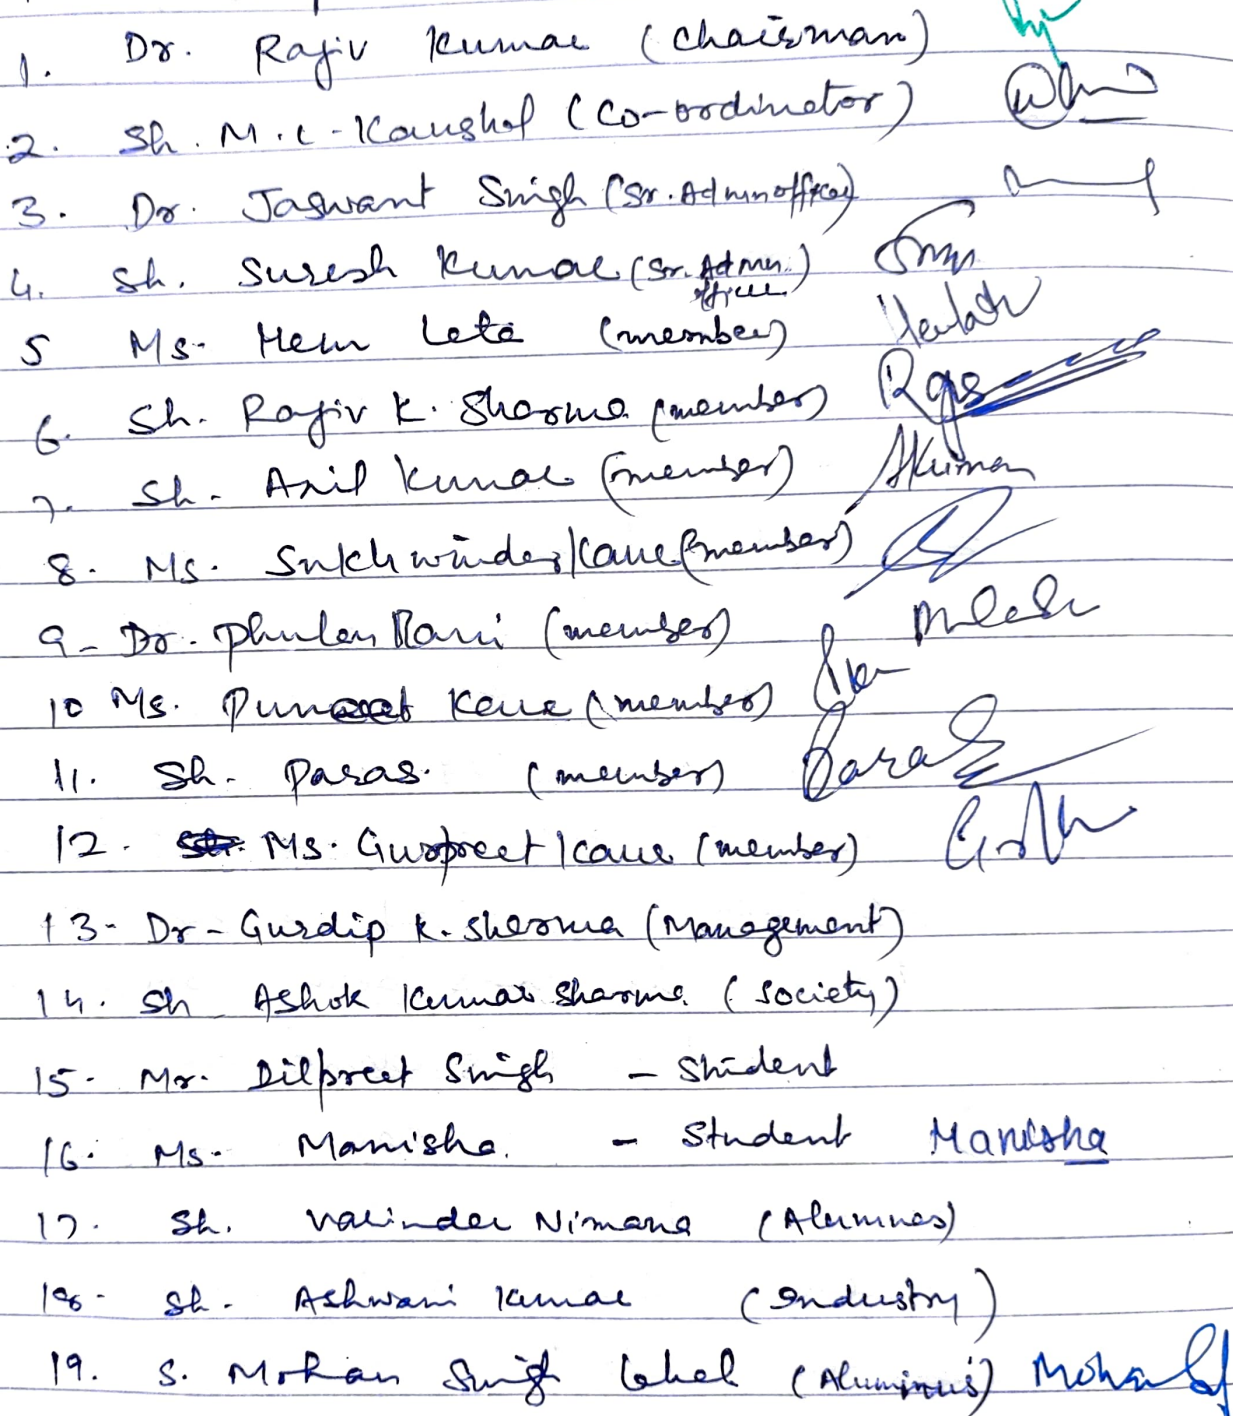 1. Dr. Rajiv Kumar (Chairman)
2. Sh. M.L. Kaushal (Co-ordinator)
3. Dr. Jaswant Singh (Sr. Admn officer)
4. Sh. Suresh Kumar (Sr. Admn. officer)
5 Ms. Hem Lata (member)
6. Sh. Rajiv K. Sharma (member) Rajs
7. Sh. Anil Kumar (member) AKumar
8. Ms. Sukhwinder Kaur (member)
9- Dr. Phulan Rani (member)
10 Ms. Puneet Kaur (member)
11. Sh. Paras. (member) Paras
12. Ms. Gurpreet Kaur (member)
13- Dr- Gurdip K. Sharma (Management)
14. Sh Ashok Kumar Sharma (Society)
15- Mr. Dilpreet Singh - Student
16. Ms. Manisha. - Student Manisha
17. Sh. Varinder Nimana (Alumnus)
18- Sh. Ashwani Kumar (Industry)
19. S. Mohan Singh (Aluminus) Mohan